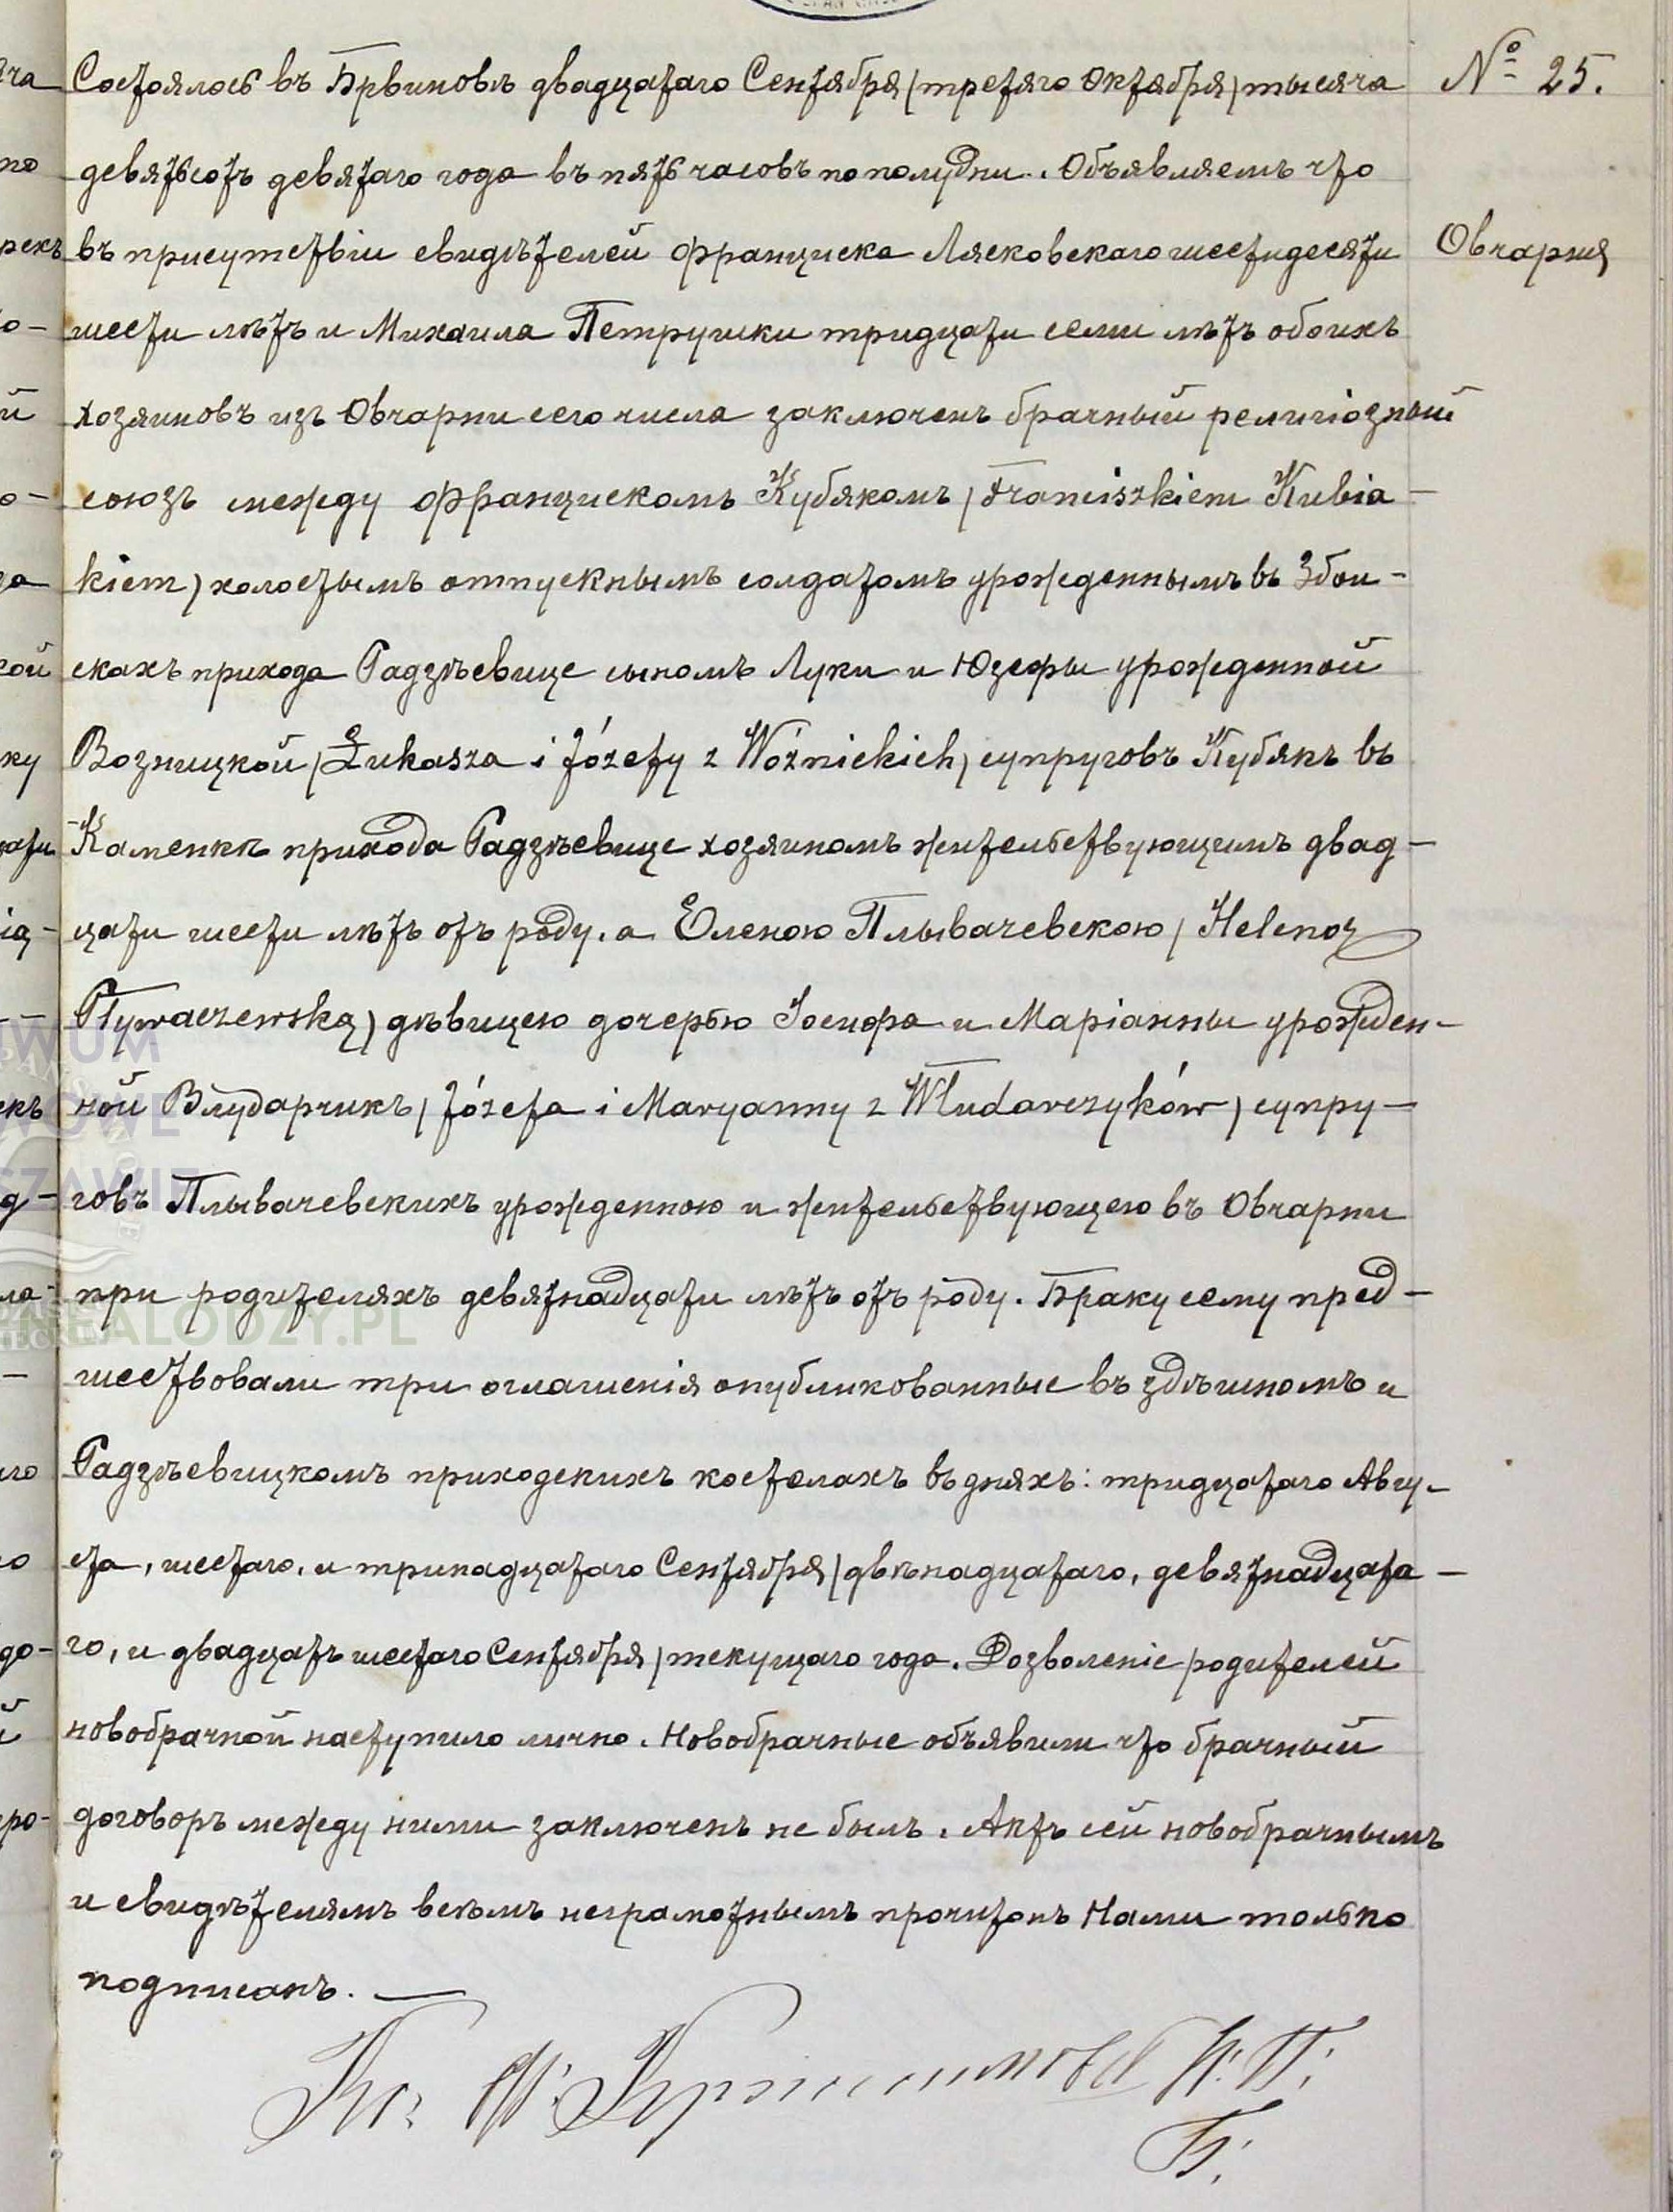 Состоялось въ Брвиновѣ двадцатаго Сентября (третяго Октября) тысяча
№ 25.
девятьсотъ девятаго года въ пять часовъ по полудни. Объявляемъ что
въ присутствіи свидѣтелей Франциска Лясковскаго шестидесяти
Овчарня
шести лѣтъ и Михаила Петрушки тридцати семи лѣтъ обоихъ
хозяиновъ изъ Овчарни сего числа заключенъ брачный религіозный
союзъ между Францискомъ Кубякомъ (Franciszkiem Kubia-
kiem) холостымъ отпускнымъ солдатомъ урожденнымъ въ Збои-
скахъ прихода Радзѣевице сыномъ Луки и Юзефы урожденной
Возницкой (Łukasza i Józefy z Woźnickich) супруговъ Кубякъ въ
Каменкѣ прихода Радзѣевице хозяиномъ жительствующимъ двад-
цати шести лѣтъ отъ роду, а Еленою Плывачевскою (Heleną
Pływaczewską) дѣвицею дочерью Іосифа и Маріанны урожден-
ной Влударчикъ (Józefa i Maryanny z Włudarczyków) супру-
говъ Плывачевскихъ урожденною и жительствующею въ Овчарни
при родителяхъ девятнадцати лѣтъ отъ роду. Браку сему пред-
шествовали три оглашенія опубликованные въ здѣшномъ и
Радзѣевицкомъ приходскихъ костелахъ въ дняхъ: тридцатаго Авгу-
ста, шестаго, и тринадцатаго Сентября (двѣнадцатаго, девятнадцата-
го, и двадцать шестаго Сентября) текущаго года. Дозволеніе родителей
новобрачной наступило лично. Новобрачные объявили что брачный
договоръ между ними заключенъ не былъ. Актъ сей новобрачнымъ
и свидѣтелямъ всѣмъ неграмотнымъ прочитанъ Нами только
подписанъ. —